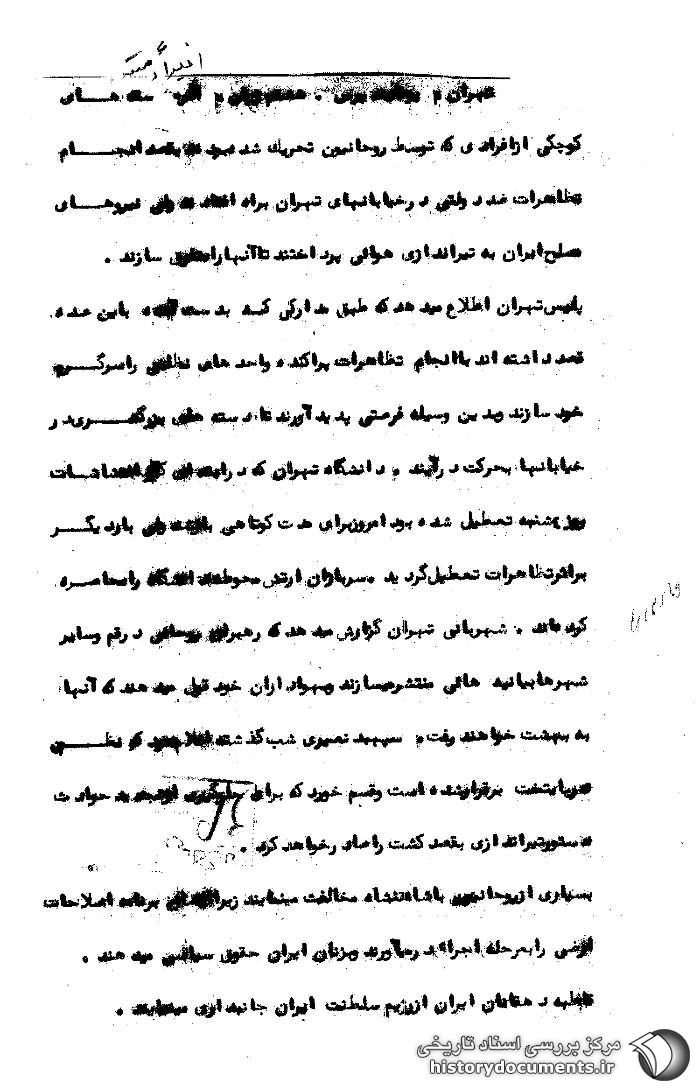 تهران و
کوچکی ازافرادی که توسط روحانیون تحریک شد بقصد انجام
تظاهرات ضد دولتی در خیابانهای تهران براه نیروهای
مسلح ایران به تیراندازی هوائی پرداختند تا آنها را متفرق سازند .
پلیس تهران اطلاع میدهد که طبق مدارکی که بدست باین عده
قصد داشته اند باانجام تظاهرات پراکنده واحد های نظامی راسرگرم
خود سازند وبدین وسیله فرصتی پدید آورند تا دسته های بزرگتری در
خیابانها بحرکت درآیند . دانشگاه تهران که در
روز یکشنبه تعطیل شده بود امروزبرای مدت کوتاهی بار دیگر
براثرتظاهرات تعطیل گردید . سربازان ارتش محوطه دانشگاه رامحاصره
کرده اند . شهربانی تهران گزارش میدهد که رهبران روحانی در قم وسایر
شهرها بیانیه هائی منتشرمیسازند وبهواداران خود قول میدهند که آنها
به بهشت خواهند رفت . سپهبد نصیری شب گذشته که نظم
درپایتخت برقرارشده است وقسم خورد که برای جلوگیری از حوادث
دستورتیراندازی بقصد کشت راصادر خواهد کرد .
بسیاری ازروحانیون باشاهنشاه مخالفت مینمایند زیرا برنامه اصلاحات
ارضی را بمرحله اجراء درمیآورند وبزنان ایران حقوق سیاسی میدهند .
قاطبه دهقانان ایران ازرژیم سلطنت ایران جانبداری مینمایند .
مرکز بررسی اسناد تاریخی
historydocuments.ir